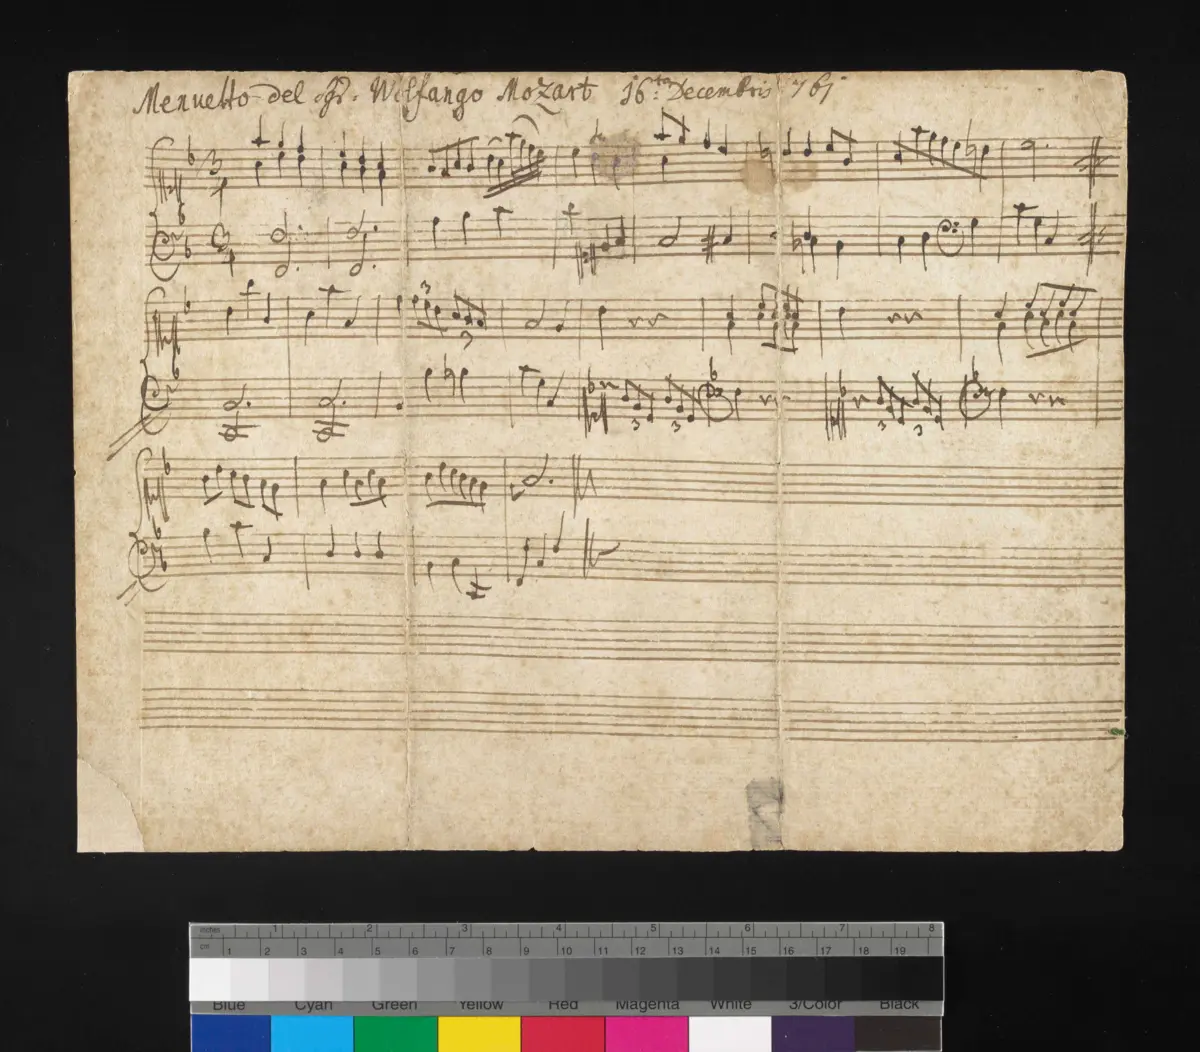 Menuetto del Sgr. Wolfango Mozart 16ta Decembris 761
3
3
3 3 3 3
inches 1 2 3 4 5 6 7 8
cm 1 2 3 4 5 6 7 8 9 10 11 12 13 14 15 16 17 18 19
Blue Cyan Green Yellow Red Magenta White 3/Color Black